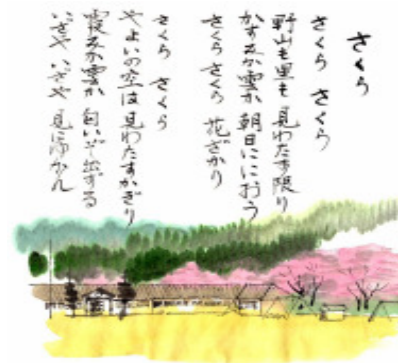 さくら
さくら さくら
野山も里も 見わたす限り
かすみか雲か 朝日ににおう
さくら さくら 花ざかり
さくら さくら
やよいの空は 見わたすかぎり
霞みか雲か 匂いぞ出ずる
いざや いざや 見にゆかん